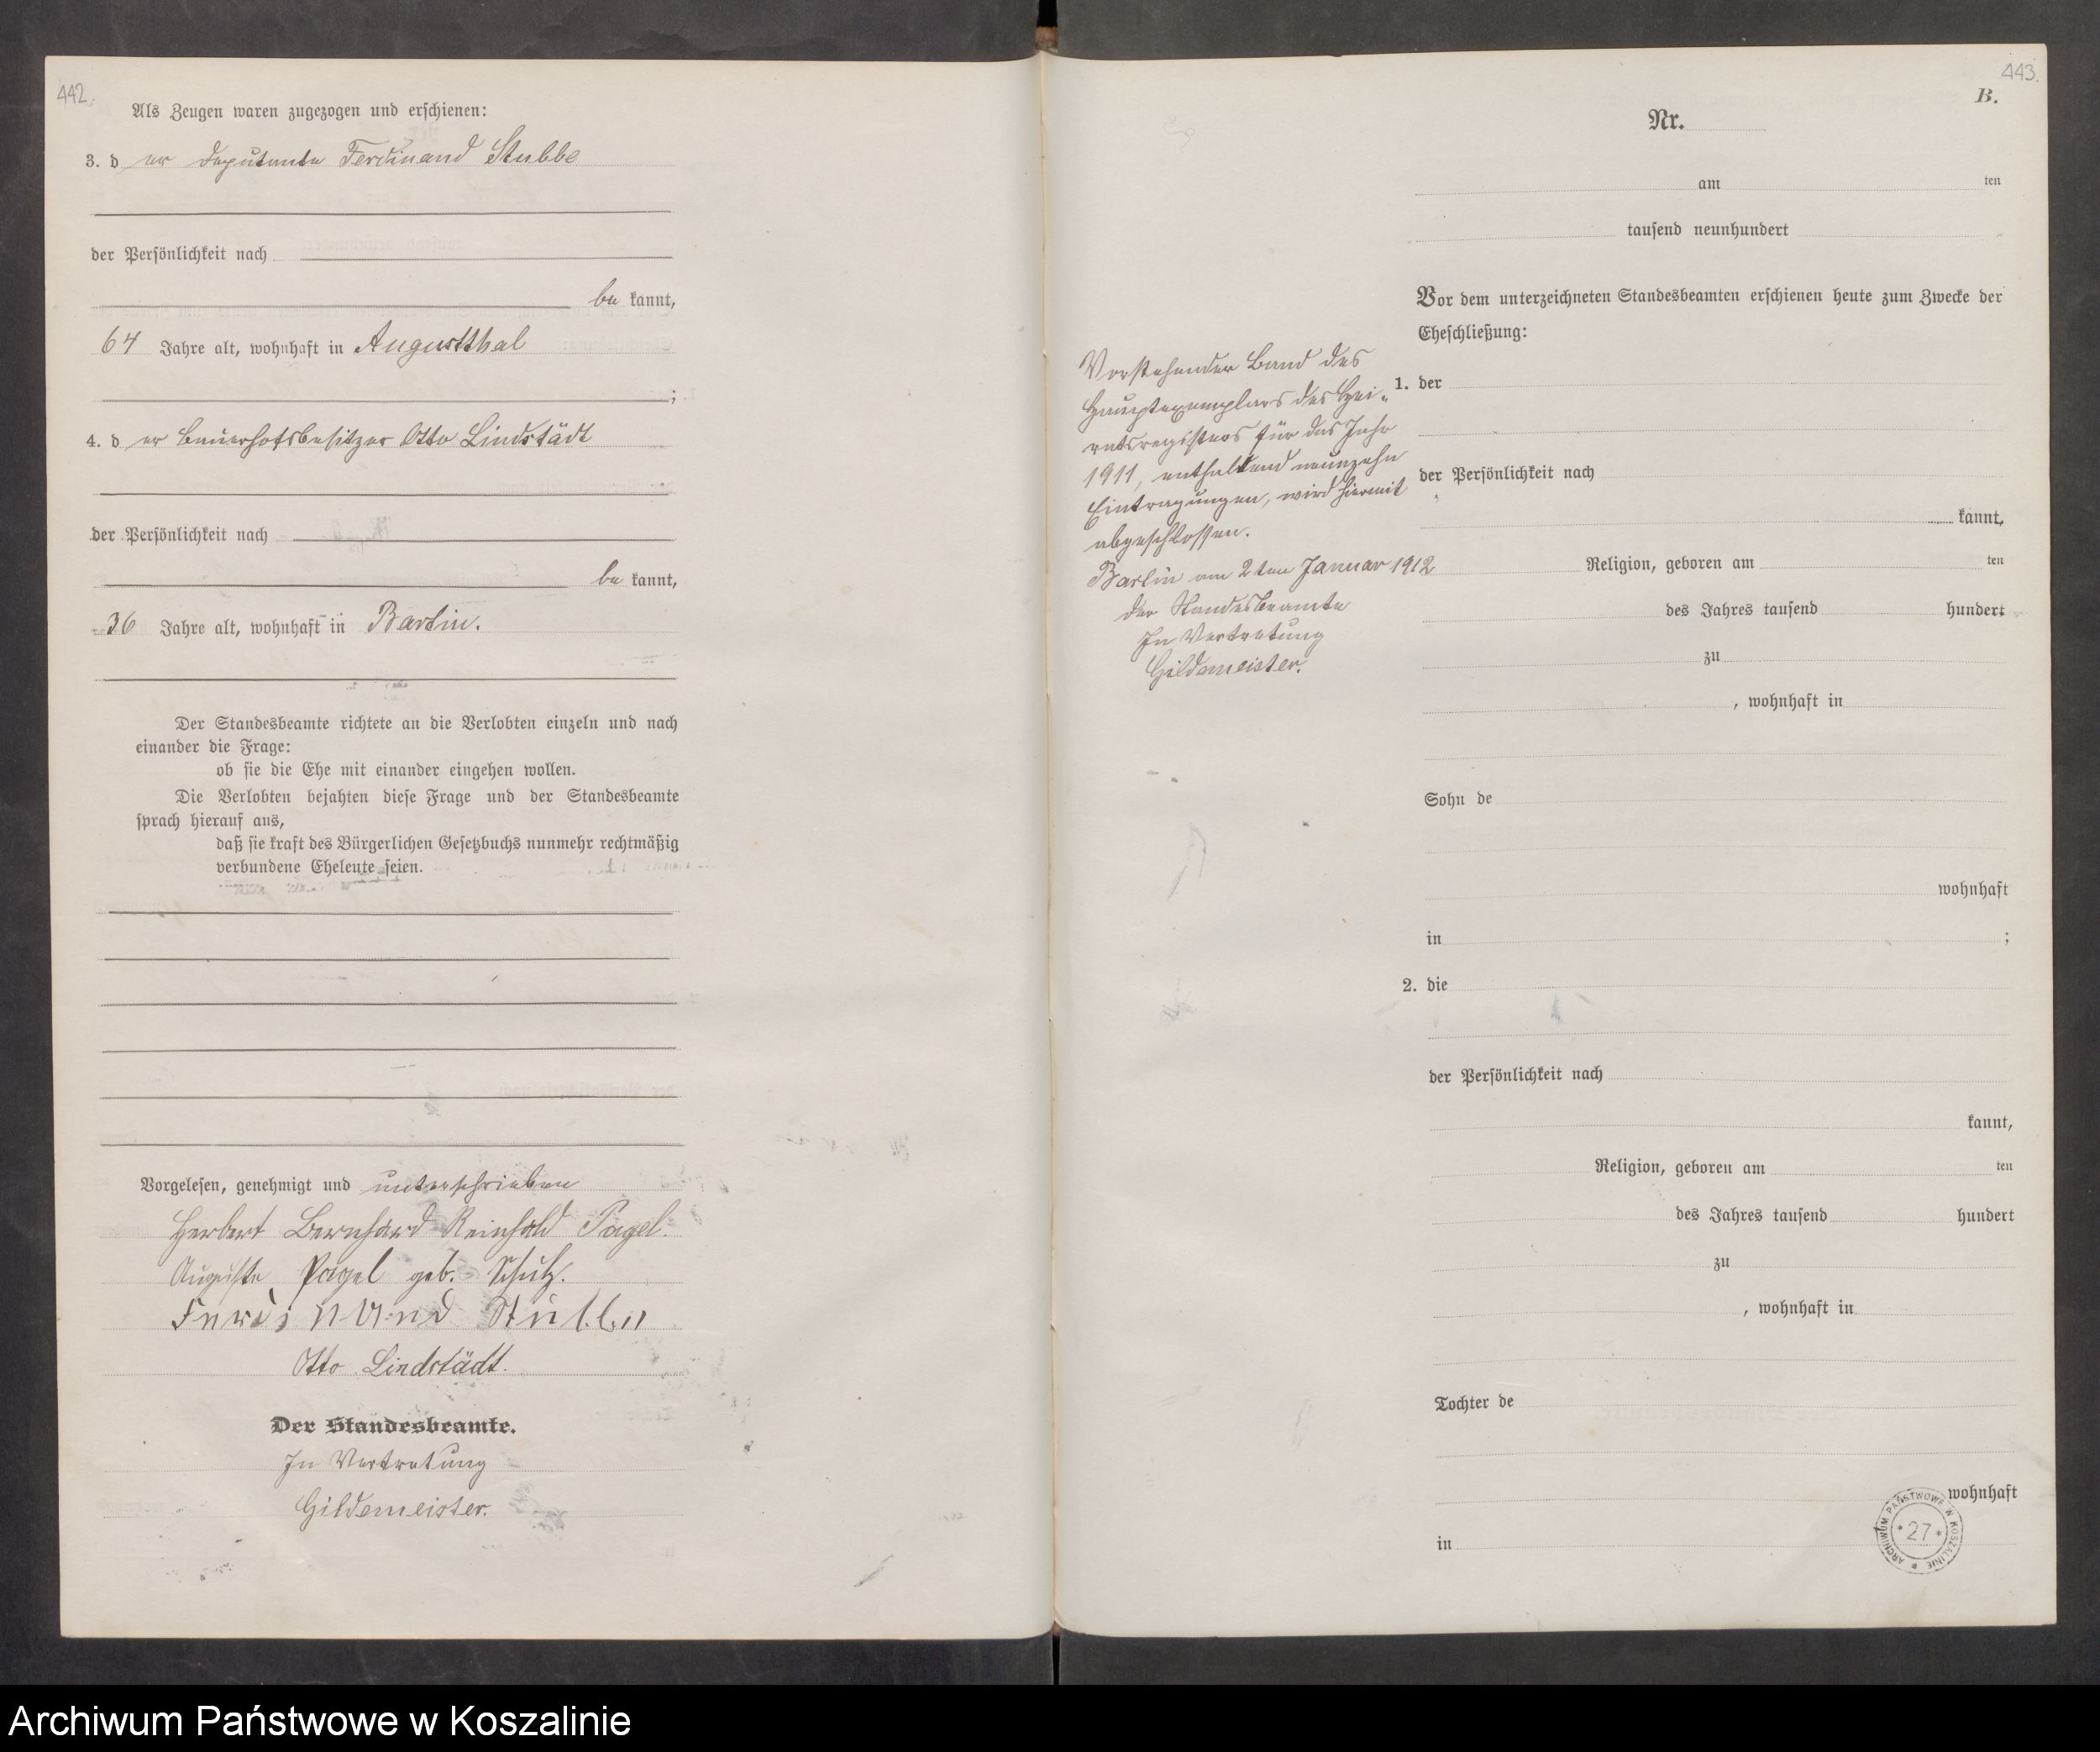 442.
Als Zeugen waren zugezogen und erschienen:
3. d er Deputante Ferdinand Stubbe
der Persönlichkeit nach
be kannt,
64 Jahre alt, wohnhaft in Augustthal
;
4. d er Bauerhofsbesitzer Otto Lindstädt
der Persönlichkeit nach
be kannt,
36 Jahre alt, wohnhaft in Bartin.
Der Standesbeamte richtete an die Verlobten einzeln und nach
einander die Frage:
ob sie die Ehe mit einander eingehen wollen.
Die Verlobten bejahten diese Frage und der Standesbeamte
sprach hierauf aus,
daß sie kraft des Bürgerlichen Gesetzbuchs nunmehr rechtmäßig
verbundene Eheleute seien.
Vorgelesen, genehmigt und unterschrieben
Herbert Bernhard Reinhold Pagel.
Auguste Pagel geb. Schulz.
Ferdinand Stubbe
Otto Lindstädt.
Der Standesbeamte.
In Vertretung
Gildemeister.
443.
B.
Nr.
am ten
tausend neunhundert
Vor dem unterzeichneten Standesbeamten erschienen heute zum Zwecke der
Eheschließung:
Vorstehender Band des
Hauptexemplars des Hei-
ratsregisters für das Jahr
1911, enthaltend neunzehn
Eintragungen, wird hiermit
abgeschlossen.
Bartin am 2ten Januar 1912
der Standesbeamte
In Vertretung
Gildemeister.
1. der
der Persönlichkeit nach
kannt,
Religion, geboren am ten
des Jahres tausend hundert
zu
, wohnhaft in
Sohn de
wohnhaft
in ;
2. die
der Persönlichkeit nach
kannt,
Religion, geboren am ten
des Jahres tausend hundert
zu
, wohnhaft in
Tochter de
wohnhaft
in
ARCHIWUM PAŃSTWOWE W KOSZALINIE * 27 *
Archiwum Państwowe w Koszalinie